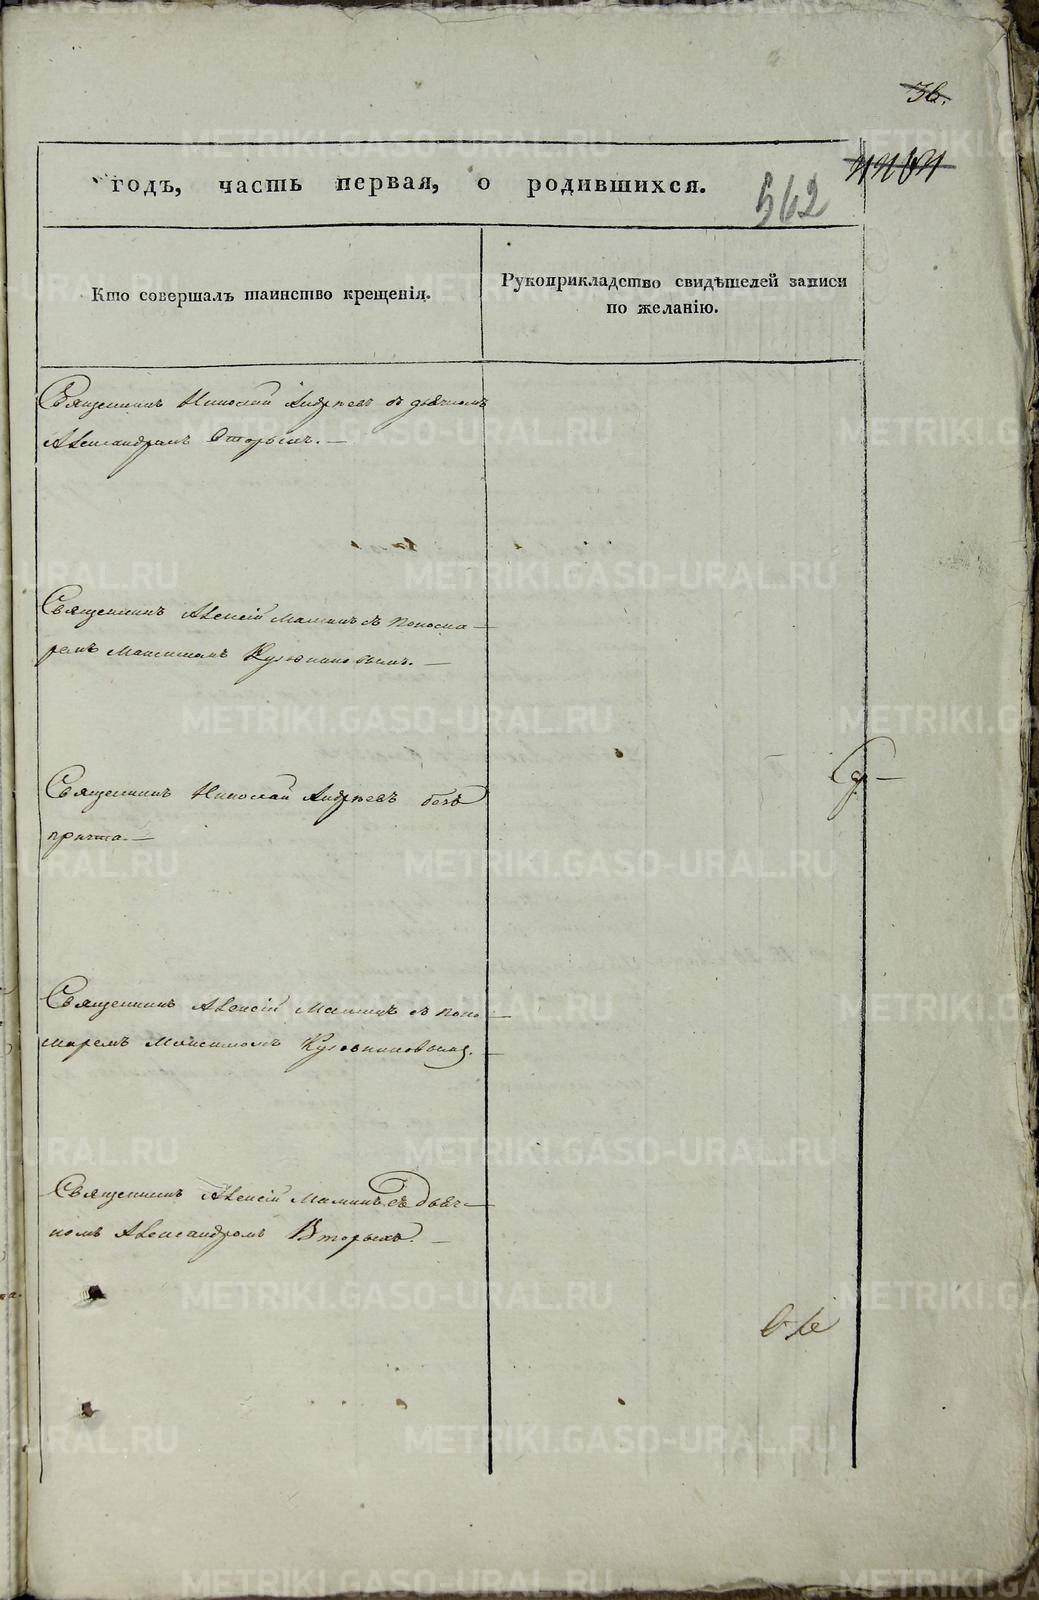 36.
562
годъ, часть первая, о родившихся.
Кто совершалъ таинство крещенія.
Рукоприкладство свидѣтелей записи
по желанію.
Священникъ Николай Андреевъ съ дьячкомъ
Александромъ Вторыхъ. —
Священникъ Алексій Маминъ съ понома-
ремъ Максимомъ
Священникъ Николай Андреевъ безъ
причта. —
Священникъ Алексій Маминъ съ поно-
маремъ Максимомъ
Священникъ Алексій Маминъ съ дьяч-
комъ Александромъ Вторыхъ. —
METRIKI.GASO-URAL.RU